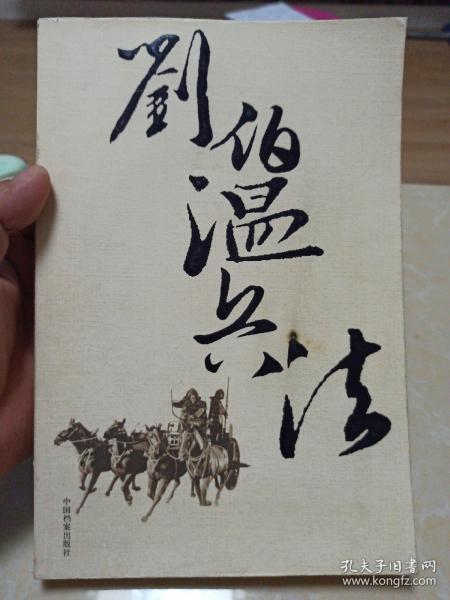 劉伯温兵法
中国档案出版社
孔夫子旧书网
www.kongfz.com